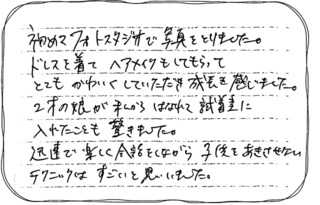 初めてフォトスタジオで写真をとりました。
ドレスを着て ヘアメイクもしてもらって
とても かわいくしていただき 成長を感じました。
2才の娘が 私から はなれて 試着室に
入れたことも 驚きました。
迅速で 楽しく 会話をしながら 子供をあきさせない
テクニックは すごいと思いました。